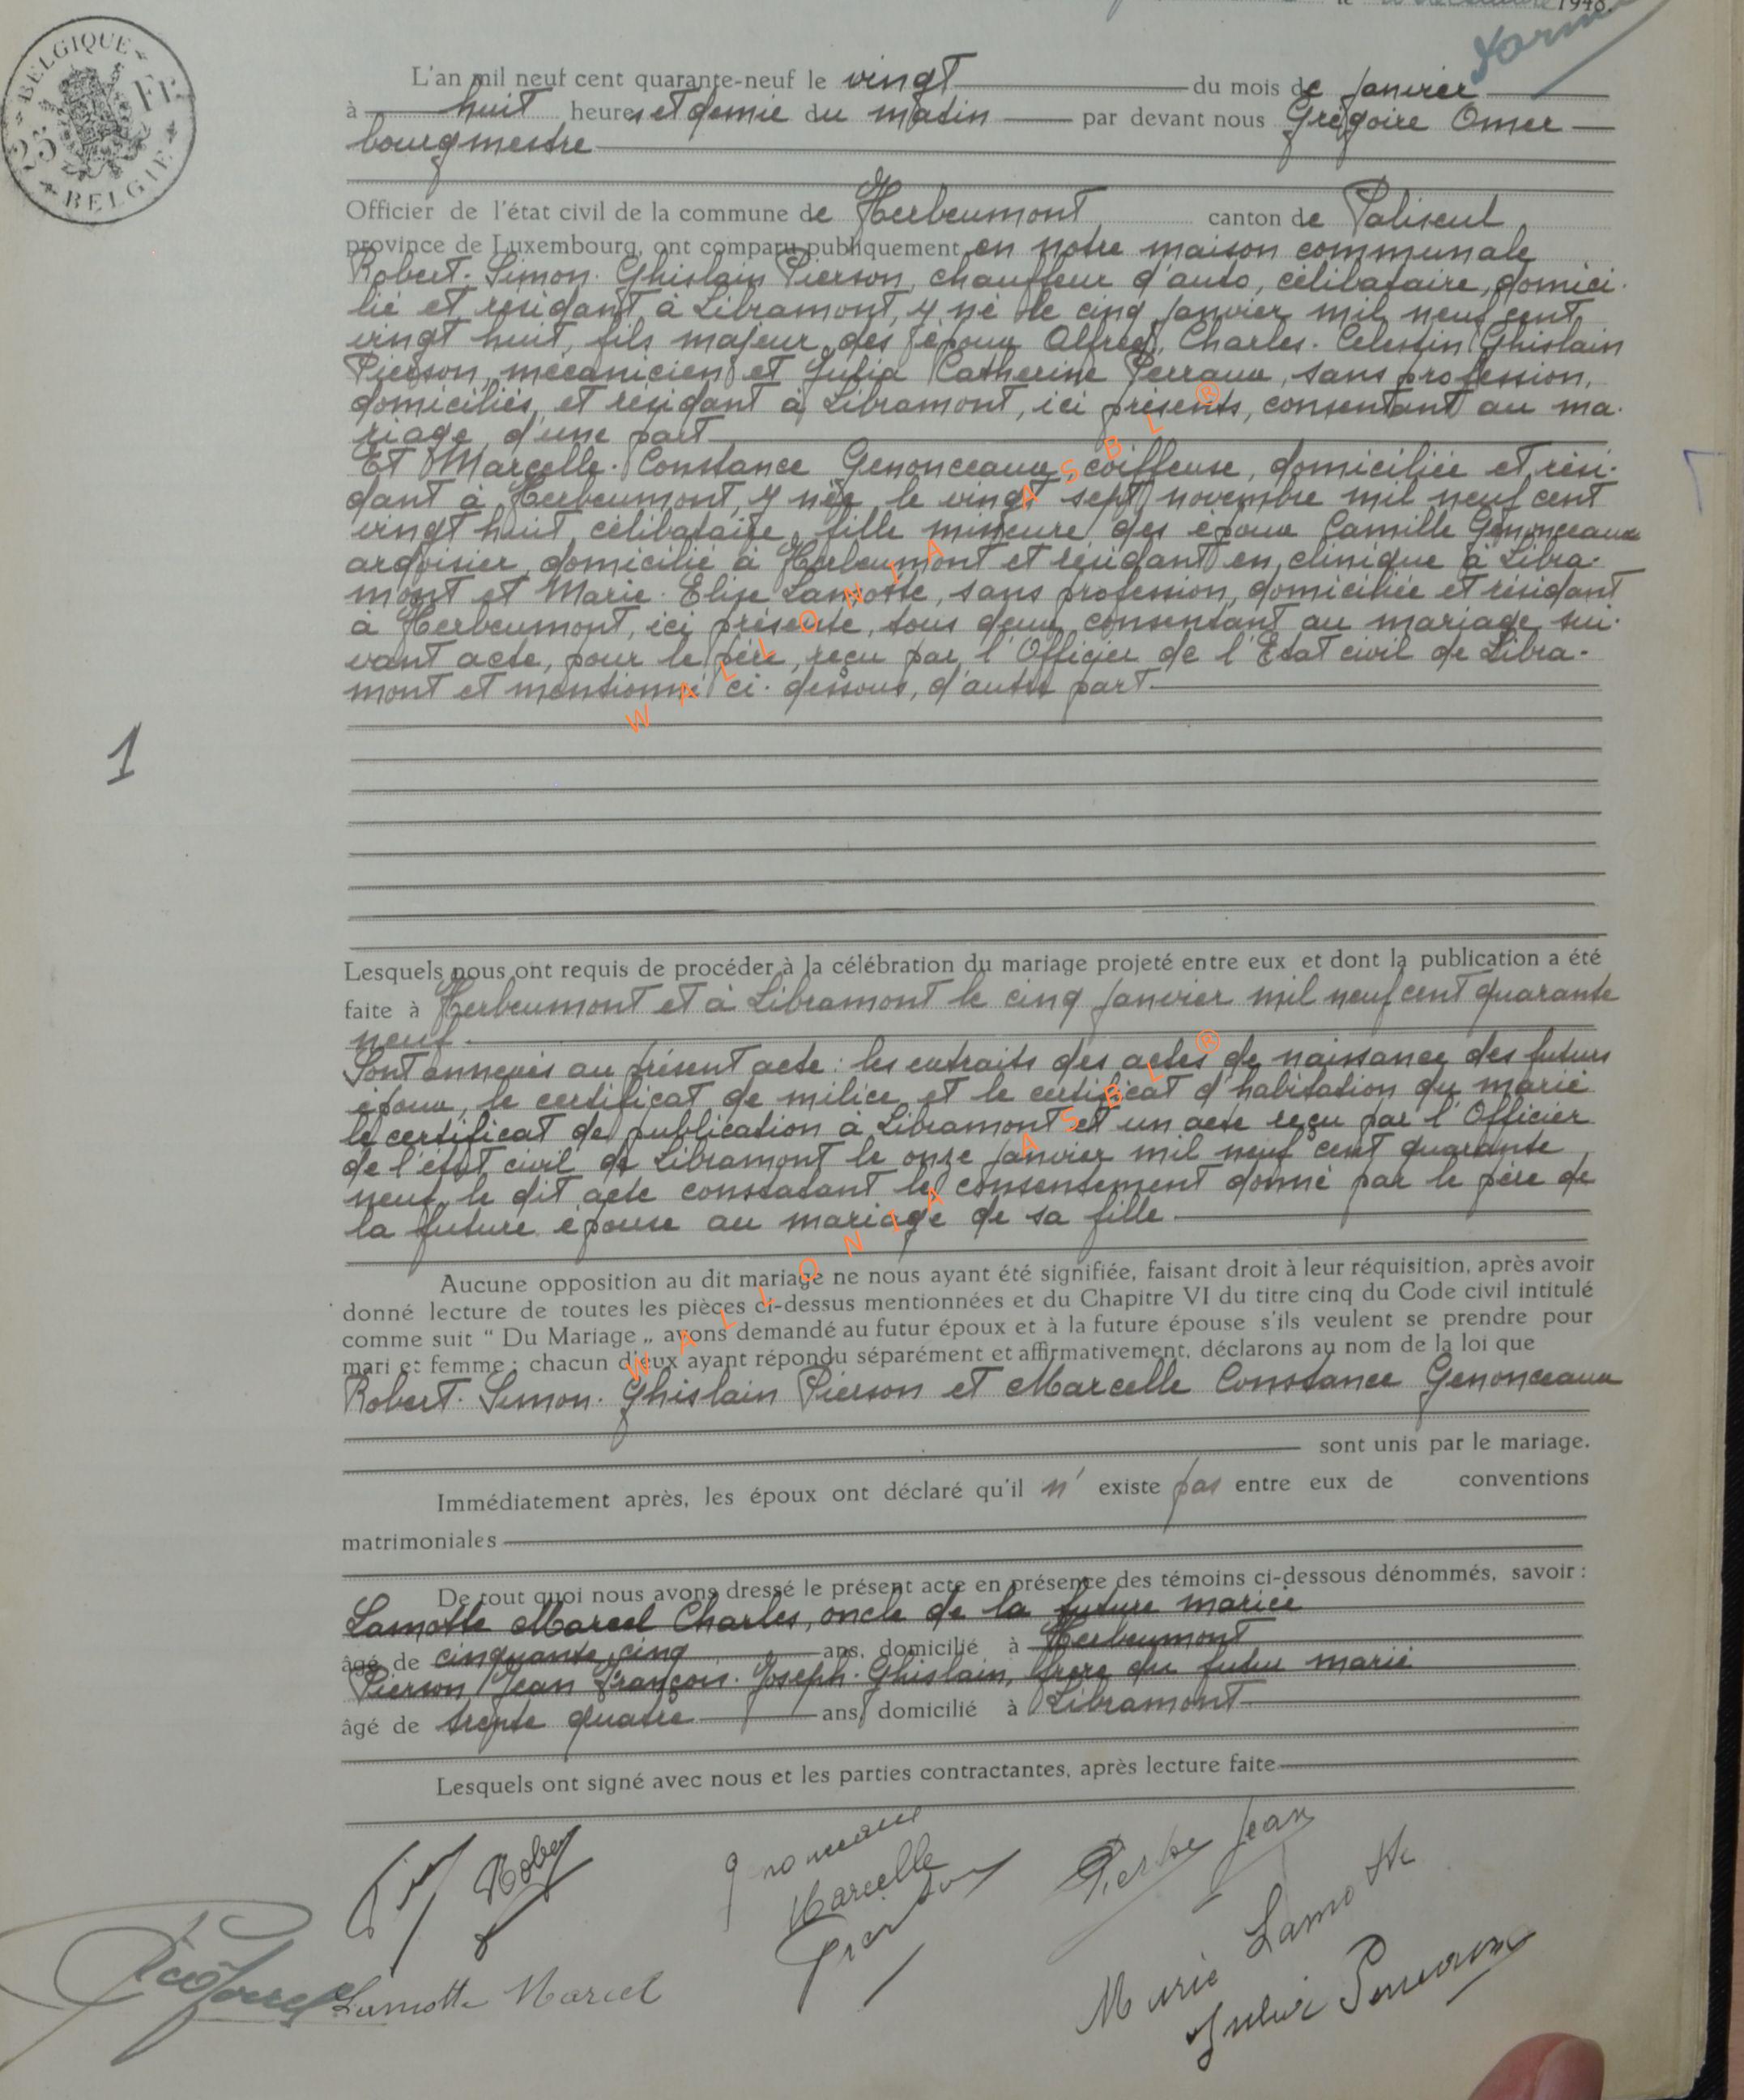 le 1948.
BELGIQUE
25 Fr.
BELGIE
L'an mil neuf cent quarante-neuf le vingt du mois de janvier
à huit heures et demie du matin par devant nous Grégoire Omer
bourgmestre
Officier de l'état civil de la commune de Herbeumont canton de Paliseul
province de Luxembourg, ont comparu publiquement en notre maison communale
Robert-Simon-Ghislain Pierson, chauffeur d'auto, célibataire, domici-
lié et résidant à Libramont, y né le cinq janvier mil neuf cent
vingt huit, fils majeur des époux Alfred, Charles-Célestin Ghislain
Pierson, mécanicien et Julia Catherine Perraux, sans profession,
domiciliés et résidant à Libramont, ici présents, consentant au ma-
riage, d'une part
Et Marcelle-Constance Genonceaux, coiffeuse, domiciliée et rési-
dant à Herbeumont, y née le vingt sept novembre mil neuf cent
vingt huit, célibataire, fille mineure des époux Camille Genonceaux
ardoisier, domicilié à Herbeumont et résidant en clinique à Libra-
mont et Marie-Elise Lamotte, sans profession, domiciliée et résidant
à Herbeumont, ici présente, tous deux consentant au mariage sui-
vant acte, pour le père, reçu par l'Officier de l'Etat civil de Libra-
mont et mentionné ci-dessous, d'autre part.
WALLONIA ASBL ®
1
Lesquels nous ont requis de procéder à la célébration du mariage projeté entre eux et dont la publication a été
faite à Herbeumont et à Libramont le cinq janvier mil neuf cent quarante
neuf.
Sont annexés au présent acte : les extraits des actes de naissance des futurs
époux, le certificat de milice et le certificat d'habitation du marié
le certificat de publication à Libramont et un acte reçu par l'Officier
de l'état civil de Libramont le onze janvier mil neuf cent quarante
neuf, le dit acte constatant le consentement donné par le père de
la future épouse au mariage de sa fille.
WALLONIA ASBL ®
Aucune opposition au dit mariage ne nous ayant été signifiée, faisant droit à leur réquisition, après avoir
donné lecture de toutes les pièces ci-dessus mentionnées et du Chapitre VI du titre cinq du Code civil intitulé
comme suit " Du Mariage „ avons demandé au futur époux et à la future épouse s'ils veulent se prendre pour
mari et femme ; chacun d'eux ayant répondu séparément et affirmativement, déclarons au nom de la loi que
Robert-Simon-Ghislain Pierson et Marcelle Constance Genonceaux
sont unis par le mariage.
Immédiatement après, les époux ont déclaré qu'il n' existe pas entre eux de conventions
matrimoniales
De tout quoi nous avons dressé le présent acte en présence des témoins ci-dessous dénommés, savoir :
Lamotte Marcel Charles, oncle de la future mariée
âgé de cinquante cinq ans, domicilié à Herbeumont
Pierson Jean François-Joseph-Ghislain, frère du futur marié
âgé de trente quatre ans, domicilié à Libramont
Lesquels ont signé avec nous et les parties contractantes, après lecture faite
Marcelle
Jean
Marie Lamotte
Lamotte Marcel